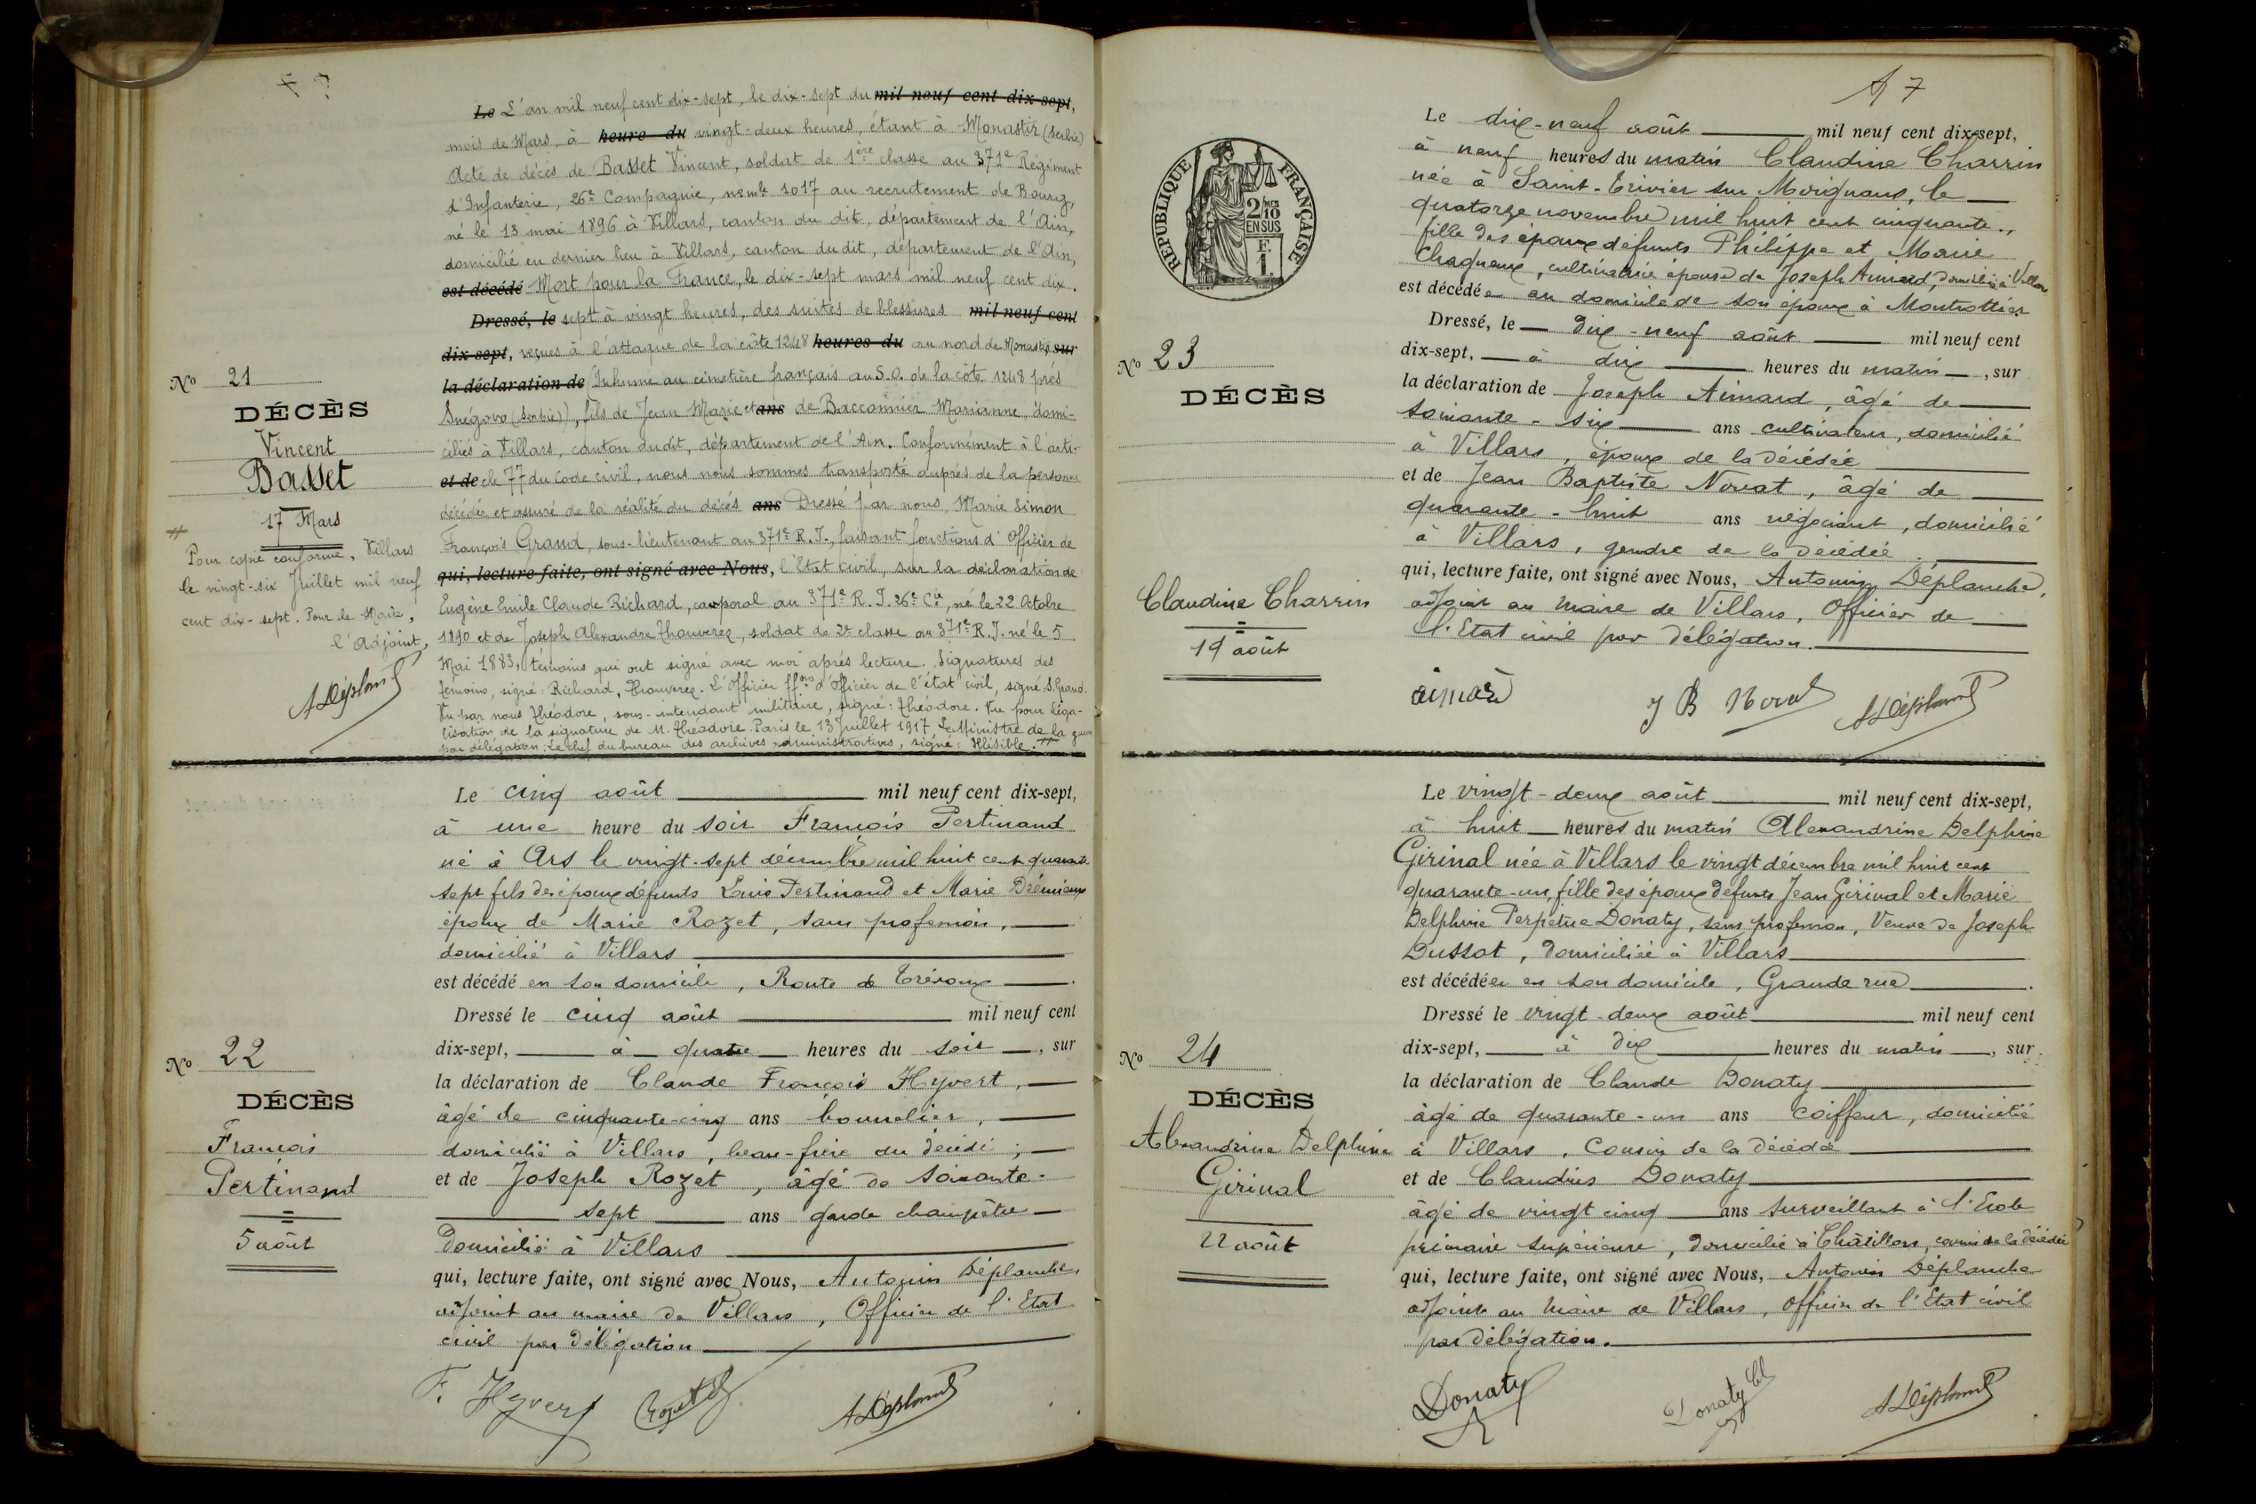 ~~Le~~ L'an mil neuf cent dix-sept, le dix-sept du ~~mil neuf cent dix-sept,~~
mois de Mars, à ~~heure du~~ vingt-deux heures, étant à Monastir (Serbie)
Acte de décès de Basset Vincent, soldat de 1ère classe au 371e Régiment
d'Infanterie, 26e Compagnie, nº mle 1017 au recrutement de Bourg,
né le 13 mai 1896 à Villars, canton du dit, département de l'Ain,
domicilié en dernier lieu à Villars, canton du dit, département de l'Ain,
~~est décédé~~ Mort pour la France, le dix-sept mars mil neuf cent dix.
~~Dressé, le~~ sept à vingt heures, des suites de blessures ~~mil neuf cent~~
~~dix-sept,~~ reçues à l'attaque de la côte 1248 ~~heures du~~ au nord de Monastir ~~sur~~
~~la déclaration de~~ Inhumé au cimetière français au S.O. de la côte 1248 près
Snégovo (Serbie), fils de Jean Marie et ~~ans~~ de Bacconnier Marianne, domi-
ciliés à Villars, canton du dit, département de l'Ain. Conformément à l'arti-
~~et de~~ cle 77 du Code civil, nous nous sommes transporté auprès de la personne
décédée et assuré de la réalité du décès ~~ans~~ Dressé par nous, Marie Simon
François Grand, sous-lieutenant au 371e R.I., faisant fonctions d'Officier de
~~qui, lecture faite, ont signé avec Nous,~~ l'Etat civil, sur la déclaration de
Eugène Emile Claude Richard, caporal au 371e R.I. 26e Cie, né le 22 Octobre
1890 et de Joseph Alexandre Thouverez, soldat de 2e classe au 371e R.I. né le 5
Mai 1883, témoins qui ont signé avec moi après lecture. Signatures des
témoins, signé: Richard, Thouverez. L'Officier ffons d'officier de l'état civil, signé S. Grand.
Vu par nous Théodore, sous-intendant militaire, signé: Théodore. Vu pour léga-
lisation de la signature de M. Théodore. Paris le 13 Juillet 1917, Le Ministre de la guerre
par délégation. Le chef du bureau des archives administratives, signé: Illisible. #
No 21
DÉCÈS
Vincent
Basset
17 Mars
#
Pour copie conforme, Villars
le vingt-six Juillet mil neuf
cent dix-sept. Pour le Maire,
l'Adjoint,
A Déplanche
Le cinq août mil neuf cent dix-sept,
à une heure du soir François Pertinand
né à Ars le vingt-sept décembre mil huit cent quarante
sept fils des époux défunts Louis Pertinand et Marie
époux de Marie Rozet, sans profession,
domicilié à Villars
est décédé en son domicile, Route de Trévoux.
Dressé le cinq août mil neuf cent
dix-sept, à quatre heures du soir, sur
la déclaration de Claude François Hyvert,
âgé de cinquante-cinq ans bourrelier,
domicilié à Villars, beau-frère du décédé;
et de Joseph Rozet, âgé de soixante-
sept ans garde champêtre
domicilié à Villars
qui, lecture faite, ont signé avec Nous, Antonin Déplanche,
adjoint au maire de Villars, Officier de l'Etat
civil par délégation
No 22
DÉCÈS
François
Pertinand
5 août
F. Hyvert Rozet A Déplanche
47
RÉPUBLIQUE FRANÇAISE
2/10 EN SUS
F. 1.
Le dix-neuf août mil neuf cent dix-sept,
à neuf heures du matin Claudine Charrin
née à Saint-Trivier sur Moignans, le
quatorze novembre mil huit cent cinquante,
fille des époux défunts Philippe et Marie
Chagneux, cultivatrice épouse de Joseph Aimard, domiciliée à Villars
est décédée au domicile de son époux à Montrottier
Dressé, le dix-neuf août mil neuf cent
dix-sept, à dix heures du matin, sur
la déclaration de Joseph Aimard, âgé de
soixante-six ans cultivateur, domicilié
à Villars, époux de la décédée
et de Jean Baptiste Novat, âgé de
quarante-huit ans négociant, domicilié
à Villars, gendre de la décédée.
qui, lecture faite, ont signé avec Nous, Antonin Déplanche,
adjoint au maire de Villars, Officier de
l'Etat civil par délégation.
No 23
DÉCÈS
Claudine Charrin
19 août
aimard J B Novat A Déplanche
Le vingt-deux août mil neuf cent dix-sept,
à huit heures du matin Alexandrine Delphine
Girinal née à Villars le vingt décembre mil huit cent
quarante-un, fille des époux défunts Jean Girinal et Marie
Delphine Perpétue Donaty, sans profession, Veuve de Joseph
Dussot, domiciliée à Villars
est décédée en son domicile, Grande rue.
Dressé le vingt-deux août mil neuf cent
dix-sept, à dix heures du matin, sur
la déclaration de Claude Donaty
âgé de quarante-un ans coiffeur, domicilié
à Villars, cousin de la décédée
et de Claudius Donaty
âgé de vingt cinq ans surveillant à l'Ecole
primaire supérieure, domicilié à Châtillon, cousin de la décédée
qui, lecture faite, ont signé avec Nous, Antonin Déplanche
adjoint au maire de Villars, officier de l'Etat civil
par délégation.
No 24
DÉCÈS
Alexandrine Delphine
Girinal
22 août
Donaty Donaty Cl A Déplanche